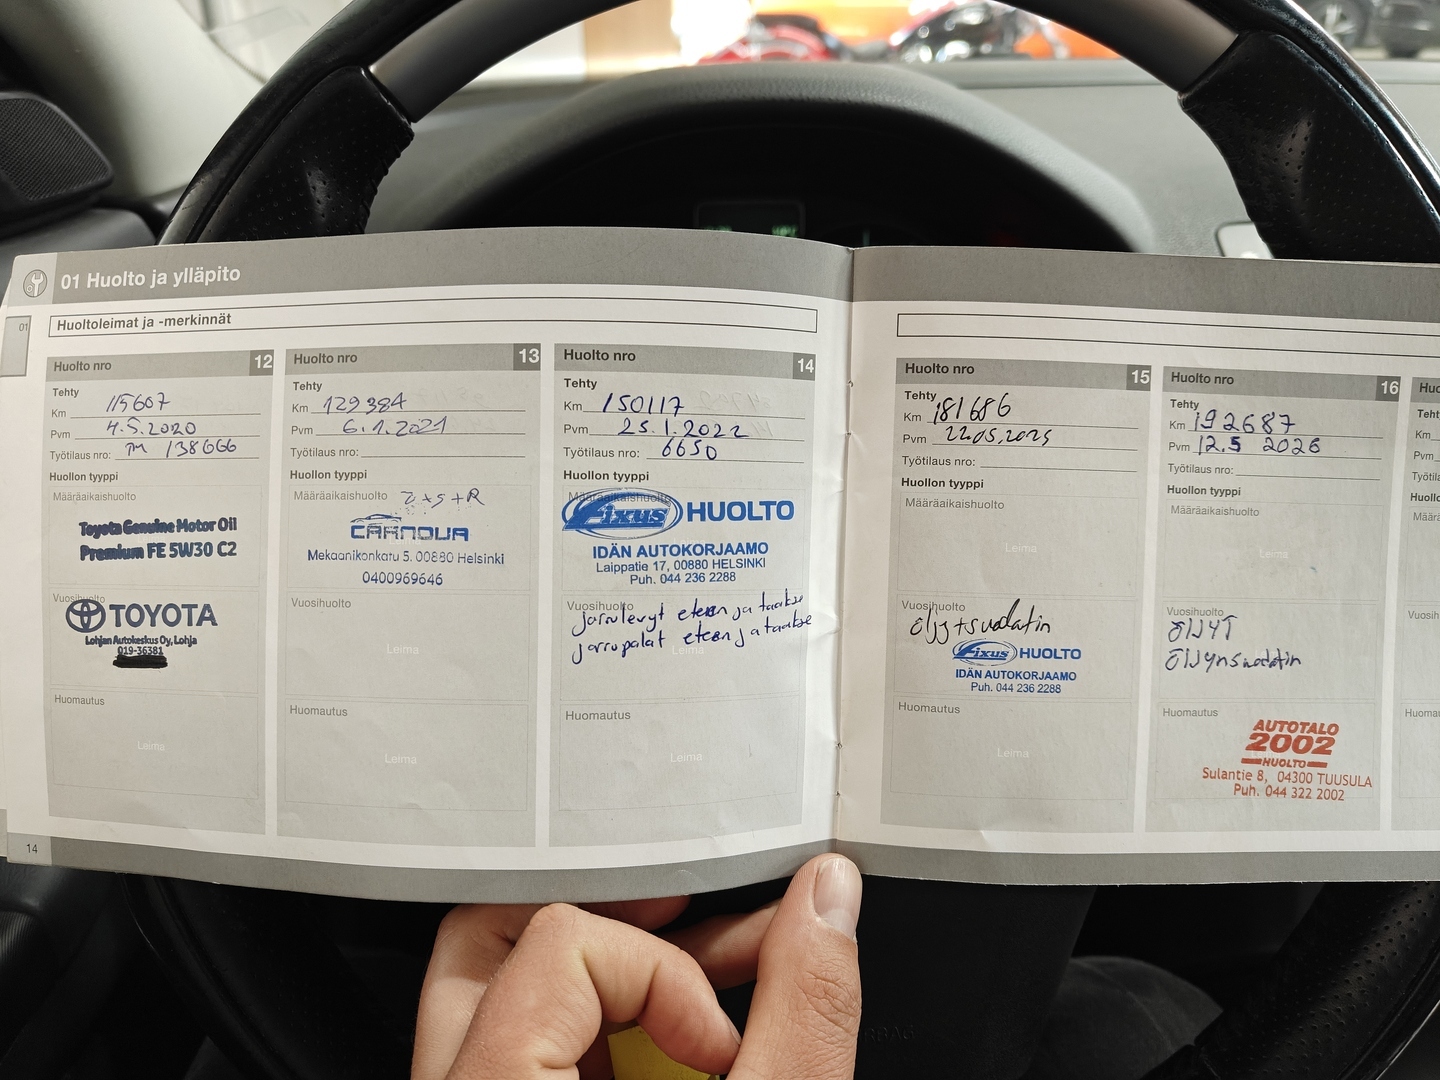 01 Huolto ja ylläpito
01
Huoltoleimat ja -merkinnät
Huolto nro 12
Tehty
Km 115607
Pvm 4.5.2020
Työtilaus nro: TM 138666
Huollon tyyppi
Määräaikaishuolto
Toyota Genuine Motor Oil
Premium FE 5W30 C2
Vuosihuolto
TOYOTA
Lohjan Autokeskus Oy, Lohja
019-36381
Huomautus
Leima
14
Huolto nro 13
Tehty
Km 129384
Pvm 6.1.2021
Työtilaus nro:
Huollon tyyppi
Määräaikaishuolto
+S+R
CARNOVA
Mekaanikonkatu 5, 00880 Helsinki
0400969646
Vuosihuolto
Leima
Huomautus
Leima
Huolto nro 14
Tehty
Km 150117
Pvm 25.1.2022
Työtilaus nro: 6650
Huollon tyyppi
Määräaikaishuolto
Fixus HUOLTO
IDÄN AUTOKORJAAMO
Laippatie 17, 00880 HELSINKI
Puh. 044 236 2288
Vuosihuolto
jarrulevyt eteen ja taakse
jarrupalat eteen ja taakse
Leima
Huomautus
Leima
Huolto nro 15
Tehty
Km 181686
Pvm 22.05.2025
Työtilaus nro:
Huollon tyyppi
Määräaikaishuolto
Leima
Vuosihuolto
öljy+suodatin
Fixus HUOLTO
IDÄN AUTOKORJAAMO
Puh. 044 236 2288
Huomautus
Leima
Huolto nro 16
Tehty
Km 192687
Pvm 12.5 2026
Työtilaus nro:
Huollon tyyppi
Määräaikaishuolto
Leima
Vuosihuolto
ÖljyT
Öljynsuodatin
Huomautus
AUTOTALO
2002
HUOLTO
Sulantie 8, 04300 TUUSULA
Puh. 044 322 2002
Km
Pvm